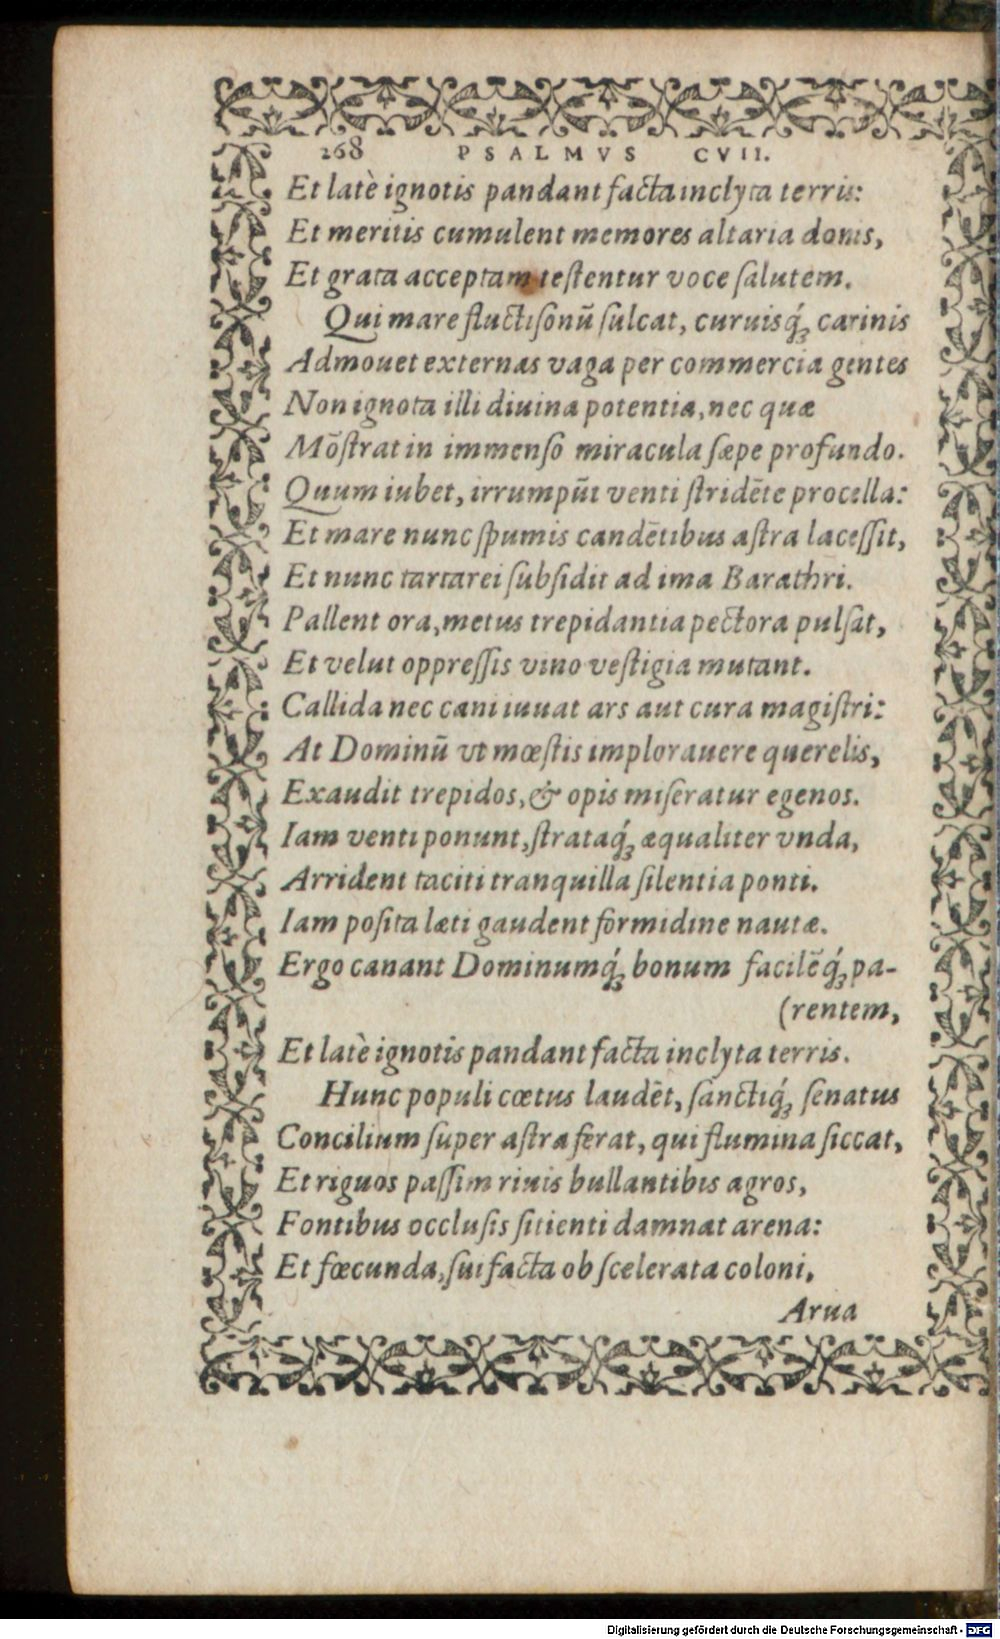 268 PSALMVS CVII.
Et latè ignotis pandant facta inclyta terris:
Et meritis cumulent memores altaria donis,
Et grata acceptam teſtentur voce ſalutem.
Qui mare fluctiſonū ſulcat, curuisq́ꝫ carinis
Admouet externas vaga per commercia gentes
Non ignota illi diuina potentia, nec quæ
Mōſtrat in immenſo miracula ſæpe profundo.
Quum iubet, irrumpūt venti ſtridēte procella:
Et mare nunc ſpumis candētibus aſtra laceſſit,
Et nunc tartarei ſubſidit ad ima Barathri.
Pallent ora, metus trepidantia pectora pulſat,
Et velut oppreſſis vino veſtigia mutant.
Callida nec cani iuuat ars aut cura magiſtri:
At Dominū vt mœſtis implorauere querelis,
Exaudit trepidos, & opis miſeratur egenos.
Iam venti ponunt, ſtrataq́ꝫ æqualiter vnda,
Arrident taciti tranquilla ſilentia ponti.
Iam poſita læti gaudent formidine nautæ.
Ergo canant Dominumq́ꝫ bonum facilēq́ꝫ pa-
(rentem,
Et latè ignotis pandant facta inclyta terris.
Hunc populi cœtus laudēt, ſanctiq́ꝫ ſenatus
Concilium ſuper aſtra ferat, qui flumina ſiccat,
Et riguos paſſim riuis bullantibus agros,
Fontibus occluſis ſitienti damnat arena:
Et fœcunda, ſui facta ob ſcelerata coloni,
Arua
Digitalisierung gefördert durch die Deutsche Forschungsgemeinschaft - DFG